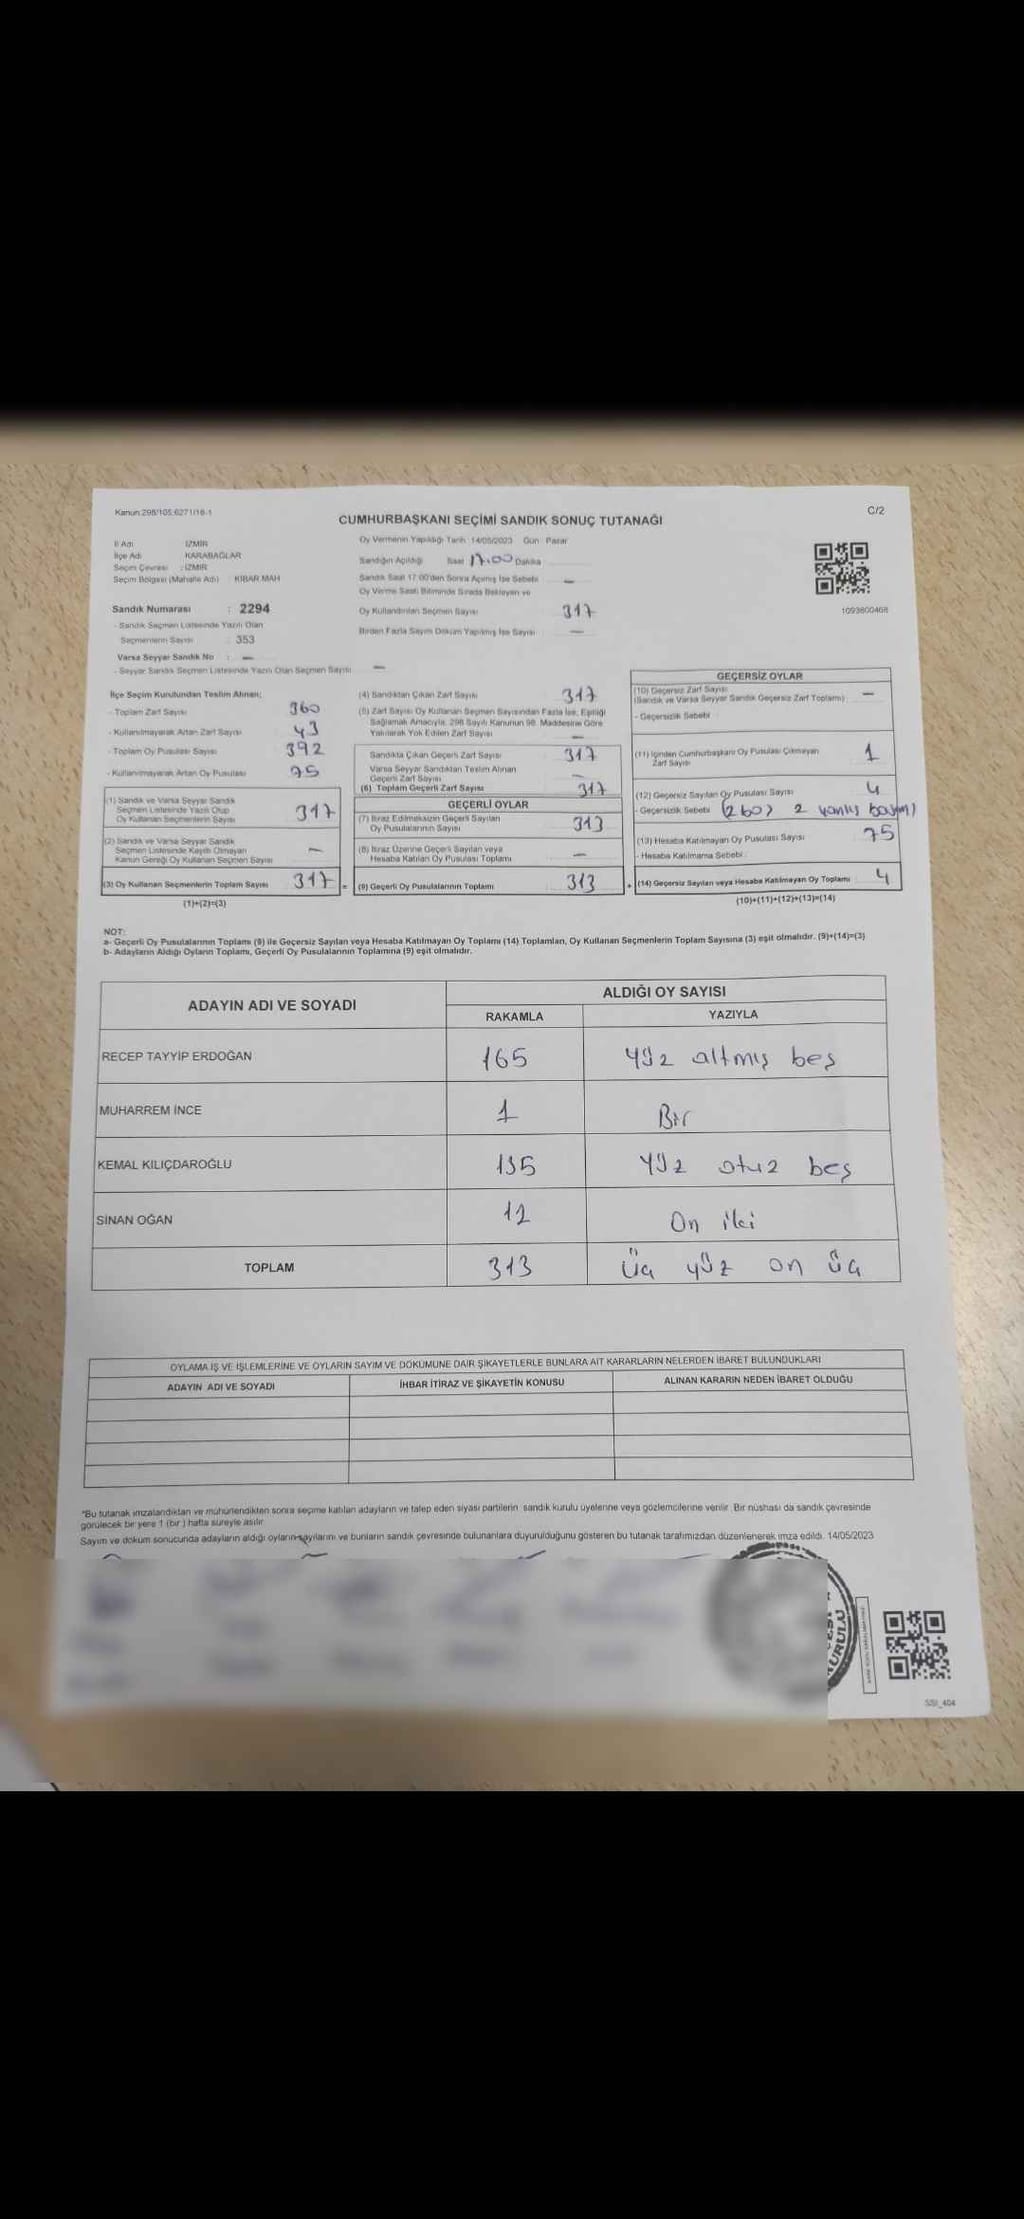 Kanun:298/105;6271/16-1
C/2
CUMHURBAŞKANI SEÇİMİ SANDIK SONUÇ TUTANAĞI
İl Adı : İZMİR
İlçe Adı : KARABAĞLAR
Seçim Çevresi : İZMİR
Seçim Bölgesi (Mahalle Adı) : KİBAR MAH
Sandık Numarası : 2294
- Sandık Seçmen Listesinde Yazılı Olan
Seçmenlerin Sayısı : 353
Varsa Seyyar Sandık No : —
- Seyyar Sandık Seçmen Listesinde Yazılı Olan Seçmen Sayısı : —
Oy Vermenin Yapıldığı Tarih: 14/05/2023 Gün: Pazar
Sandığın Açıldığı Saat 17.00 Dakika
Sandık Saat 17.00'den Sonra Açılmış İse Sebebi —
Oy Verme Saati Bitiminde Sırada Bekleyen ve
Oy Kullandırılan Seçmen Sayısı 317
Birden Fazla Sayım Döküm Yapılmış İse Sayısı —
1093800468
İlçe Seçim Kurulundan Teslim Alınan;
- Toplam Zarf Sayısı 360
- Kullanılmayarak Artan Zarf Sayısı 43
- Toplam Oy Pusulası Sayısı 392
- Kullanılmayarak Artan Oy Pusulası 75
(1) Sandık ve Varsa Seyyar Sandık
Seçmen Listesinde Yazılı Olup
Oy Kullanan Seçmenlerin Sayısı 317
(2) Sandık ve Varsa Seyyar Sandık
Seçmen Listesinde Kayıtlı Olmayan
Kanun Gereği Oy Kullanan Seçmen Sayısı —
(3) Oy Kullanan Seçmenlerin Toplam Sayısı 317 =
(1)+(2)=(3)
(4) Sandıktan Çıkan Zarf Sayısı 317
(5) Zarf Sayısı Oy Kullanan Seçmen Sayısından Fazla İse, Eşitliği
Sağlamak Amacıyla, 298 Sayılı Kanunun 98. Maddesine Göre
Yakılarak Yok Edilen Zarf Sayısı —
Sandıkta Çıkan Geçerli Zarf Sayısı 317
Varsa Seyyar Sandıktan Teslim Alınan
Geçerli Zarf Sayısı —
(6) Toplam Geçerli Zarf Sayısı 317
GEÇERLİ OYLAR
(7) İtiraz Edilmeksizin Geçerli Sayılan
Oy Pusulalarının Sayısı 313
(8) İtiraz Üzerine Geçerli Sayılan veya
Hesaba Katılan Oy Pusulası Toplamı —
(9) Geçerli Oy Pusulalarının Toplamı 313 +
GEÇERSİZ OYLAR
(10) Geçersiz Zarf Sayısı —
(Sandık ve Varsa Seyyar Sandık Geçersiz Zarf Toplamı)
- Geçersizlik Sebebi :
(11) İçinden Cumhurbaşkanı Oy Pusulası Çıkmayan
Zarf Sayısı 1
(12) Geçersiz Sayılan Oy Pusulası Sayısı 4
- Geçersizlik Sebebi : 2 yanlış
(13) Hesaba Katılmayan Oy Pusulası Sayısı 75
- Hesaba Katılmama Sebebi :
(14) Geçersiz Sayılan veya Hesaba Katılmayan Oy Toplamı 4
(10)+(11)+(12)+(13)=(14)
NOT:
a- Geçerli Oy Pusulalarının Toplamı (9) ile Geçersiz Sayılan veya Hesaba Katılmayan Oy Toplamı (14) Toplamları, Oy Kullanan Seçmenlerin Toplam Sayısına (3) eşit olmalıdır. (9)+(14)=(3)
b- Adayların Aldığı Oyların Toplamı, Geçerli Oy Pusulalarının Toplamına (9) eşit olmalıdır.
ADAYIN ADI VE SOYADI
ALDIĞI OY SAYISI
RAKAMLA YAZIYLA
RECEP TAYYİP ERDOĞAN 165 yüz altmış beş
MUHARREM İNCE 1 Bir
KEMAL KILIÇDAROĞLU 135 yüz otuz beş
SİNAN OĞAN 12 On iki
TOPLAM 313 üç yüz on üç
OYLAMA İŞ VE İŞLEMLERİNE VE OYLARIN SAYIM VE DÖKÜMÜNE DAİR ŞİKAYETLERLE BUNLARA AİT KARARLARIN NELERDEN İBARET BULUNDUKLARI
ADAYIN ADI VE SOYADI İHBAR İTİRAZ VE ŞİKAYETİN KONUSU ALINAN KARARIN NEDEN İBARET OLDUĞU
*Bu tutanak imzalandıktan ve mühürlendikten sonra seçime katılan adayların ve talep eden siyasi partilerin sandık kurulu üyelerine veya gözlemcilerine verilir. Bir nüshası da sandık çevresinde
görülecek bir yere 1 (bir) hafta süreyle asılır.
Sayım ve döküm sonucunda adayların aldığı oyların sayılarını ve bunların sandık çevresinde bulunanlara duyurulduğunu gösteren bu tutanak tarafımızdan düzenlenerek imza edildi. 14/05/2023
KURULU
SSI_404